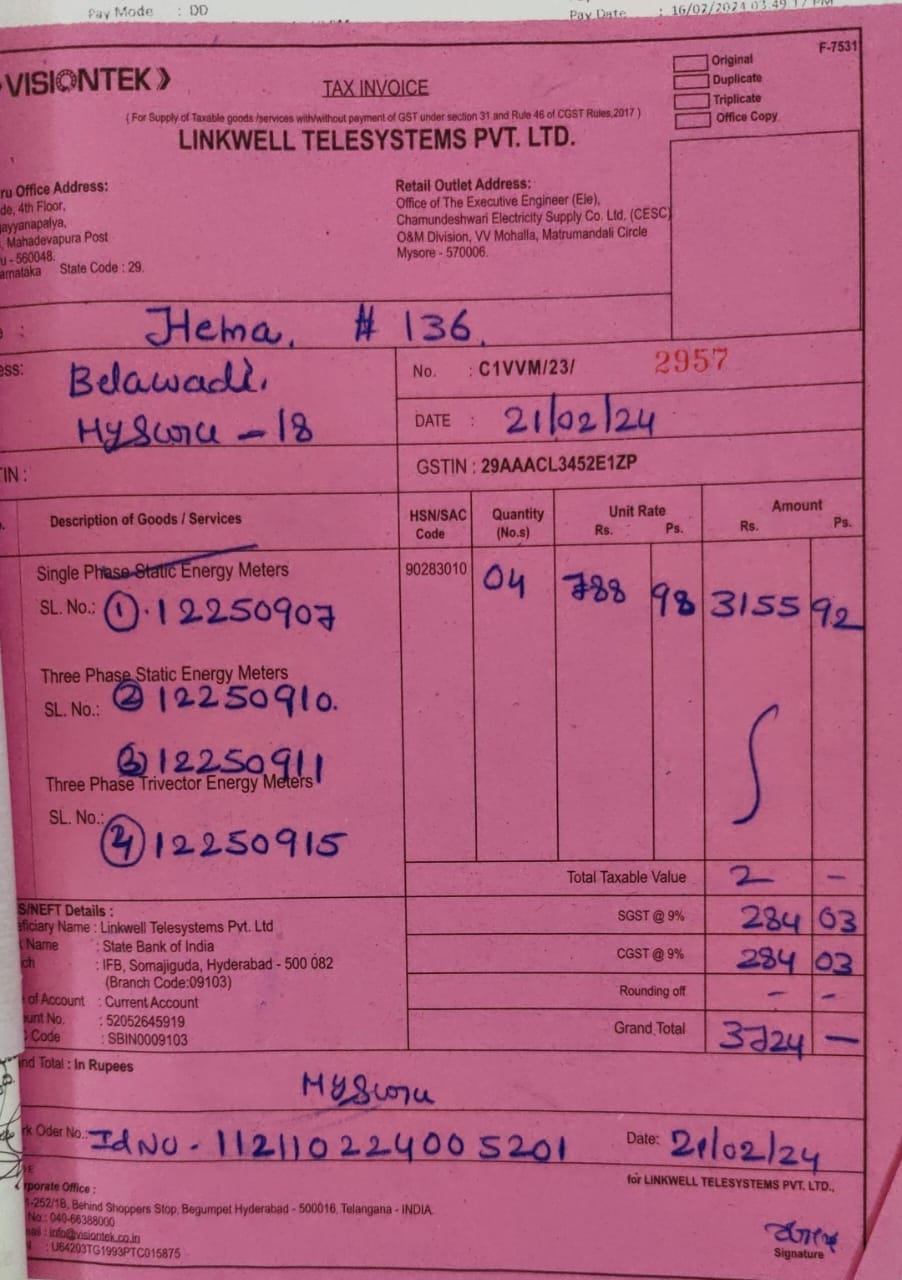 Pay Mode : DD
Pay Date : 16/02/2024 03:49
F-7531
VISIONTEK
TAX INVOICE
Original
Duplicate
Triplicate
Office Copy
( For Supply of Taxable goods /services with/without payment of GST under section 31 and Rule 46 of CGST Rules,2017 )
LINKWELL TELESYSTEMS PVT. LTD.
ru Office Address:
de, 4th Floor,
ayyanapalya,
, Mahadevapura Post
u - 560048.
arnataka State Code : 29.
Retail Outlet Address:
Office of The Executive Engineer (Ele),
Chamundeshwari Electricity Supply Co. Ltd, (CESC)
O&M Division, VV Mohalla, Matrumandali Circle
Mysore - 570006.
: Hema, # 136,
ess: Belawadi,
Mysoru - 18
No. : C1VVM/23/ 2957
DATE : 21/02/24
TIN :
GSTIN : 29AAACL3452E1ZP
Description of Goods / Services HSN/SAC Code Quantity (No.s) Unit Rate Rs. Ps. Amount Rs. Ps.
Single Phase Static Energy Meters 90283010 04 788 98 3155 92
SL. No.: ①.12250907
Three Phase Static Energy Meters
SL. No.: ② 12250910.
③ 12250911
Three Phase Trivector Energy Meters
SL. No.:
④ 12250915
Total Taxable Value 2 –
S/NEFT Details :
SGST @ 9% 284 03
eficiary Name : Linkwell Telesystems Pvt. Ltd
Name : State Bank of India
CGST @ 9% 284 03
ch : IFB, Somajiguda, Hyderabad - 500 082
(Branch Code:09103)
Rounding off - -
of Account : Current Account
ount No. : 52052645919
Grand Total 3724 —
Code : SBIN0009103
nd Total : In Rupees
Mysoru
rk Oder No.: Id NO - 11211022400 5201 Date: 21/02/24
for LINKWELL TELESYSTEMS PVT. LTD.,
rporate Office :
-252/1B, Behind Shoppers Stop, Begumpet Hyderabad - 500016, Telangana - INDIA.
No.: 040-66388000
ail : info@visiontek.co.in
: U64203TG1993PTC015875
Signature